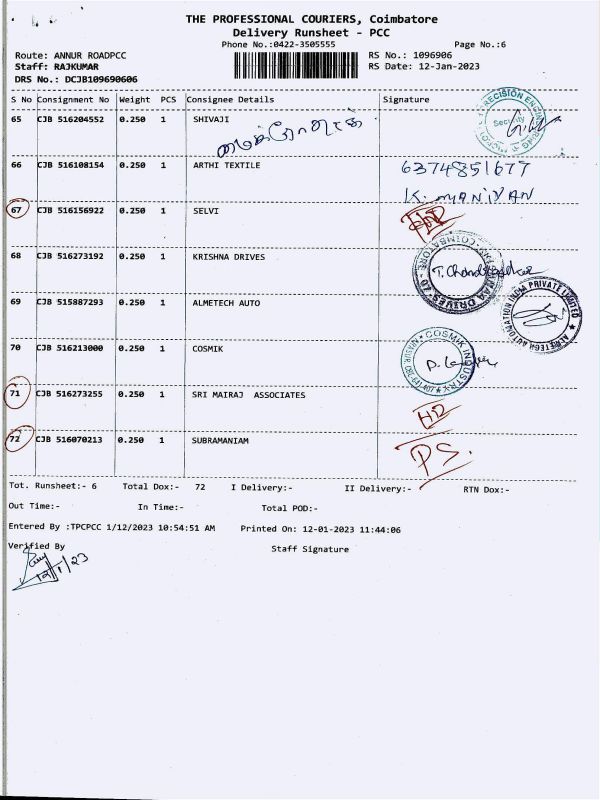 THE PROFESSIONAL COURIERS, Coimbatore
Delivery Runsheet - PCC
Phone No.:0422-3505555 Page No.:6
Route: ANNUR ROADPCC RS No.: 1096906
Staff: RAJKUMAR RS Date: 12-Jan-2023
DRS No.: DCJB109690606
S No Consignment No Weight PCS Consignee Details Signature
65 CJB 516204552 0.250 1 SHIVAJI
PRECISION ENGINEERING
Security
66 CJB 516108154 0.250 1 ARTHI TEXTILE 6374851677
K. MANIYAN
67 CJB 516156922 0.250 1 SELVI
68 CJB 516273192 0.250 1 KRISHNA DRIVES
COIMBATORE
T. Chandrasekar
69 CJB 515887293 0.250 1 ALMETECH AUTO
AUTOMATION INDIA PRIVATE LIMITED
70 CJB 516213000 0.250 1 COSMIK
COSMIK INDUSTR
71 CJB 516273255 0.250 1 SRI MAIRAJ ASSOCIATES
HD
72 CJB 516070213 0.250 1 SUBRAMANIAM
P.S.
Tot. Runsheet:- 6 Total Dox:- 72 I Delivery:- II Delivery:- RTN Dox:-
Out Time:- In Time:- Total POD:-
Entered By :TPCPCC 1/12/2023 10:54:51 AM Printed On: 12-01-2023 11:44:06
Verified By Staff Signature
12/1/23